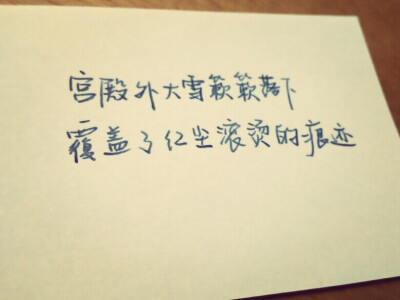 宫殿外大雪簌簌落下
覆盖了红尘滚烫的痕迹